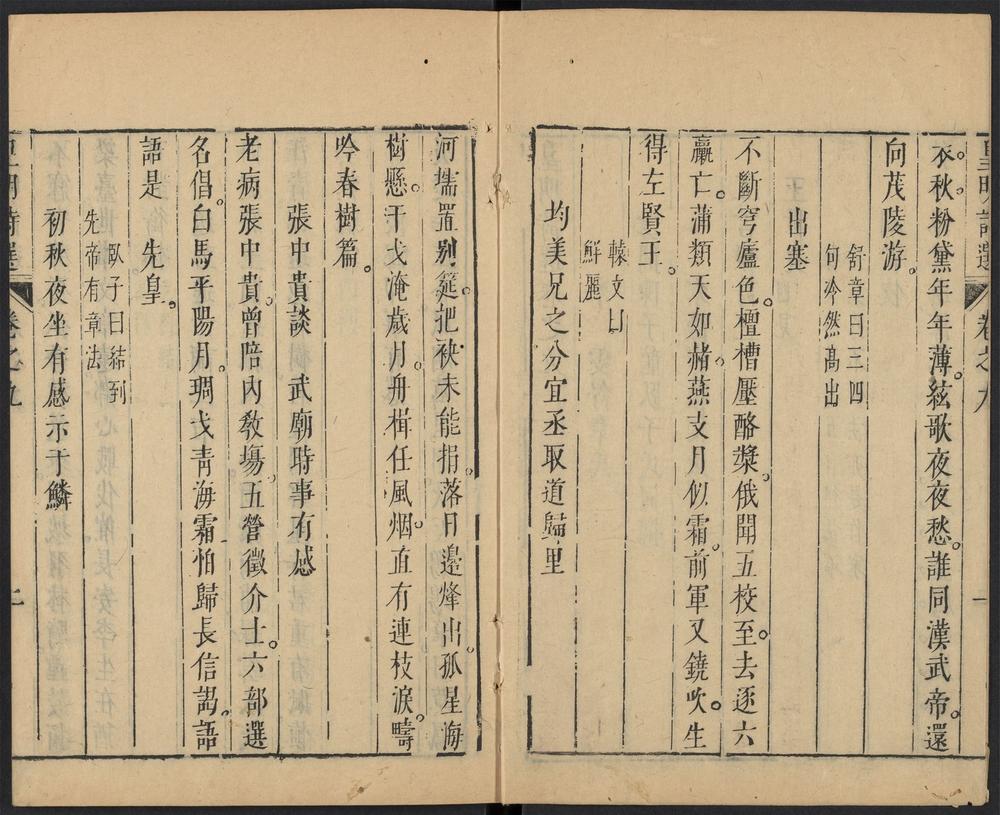 皇明詩選
卷之九
一
衣秋粉黛年年薄絃歌夜夜愁誰同漢武帝還
向茂陵游
舒章曰三四
句冷然高出
出塞
不斷穹廬色檀槽壓酪漿俄聞五校至去逐六
臝亡蒲類天如赭燕支月似霜前軍又鐃吹生
得左賢王
轅文曰
鮮麗
均美兄之分宜丞取道歸里
河壖置別筵把袂未能捐落日邊烽出孤星海
樹懸干戈淹歲月舟楫任風烟直有連枝淚疇
吟春樹篇
張中貴談 武廟時事有感
老病張中貴曾陪內教場五營徵介士六部選
名倡白馬平陽月琱戈青海霜怕歸長信謁語
語是 先皇
臥子曰結到
先帝有章法
初秋夜坐有感示于鱗
皇明詩選
卷之九
二